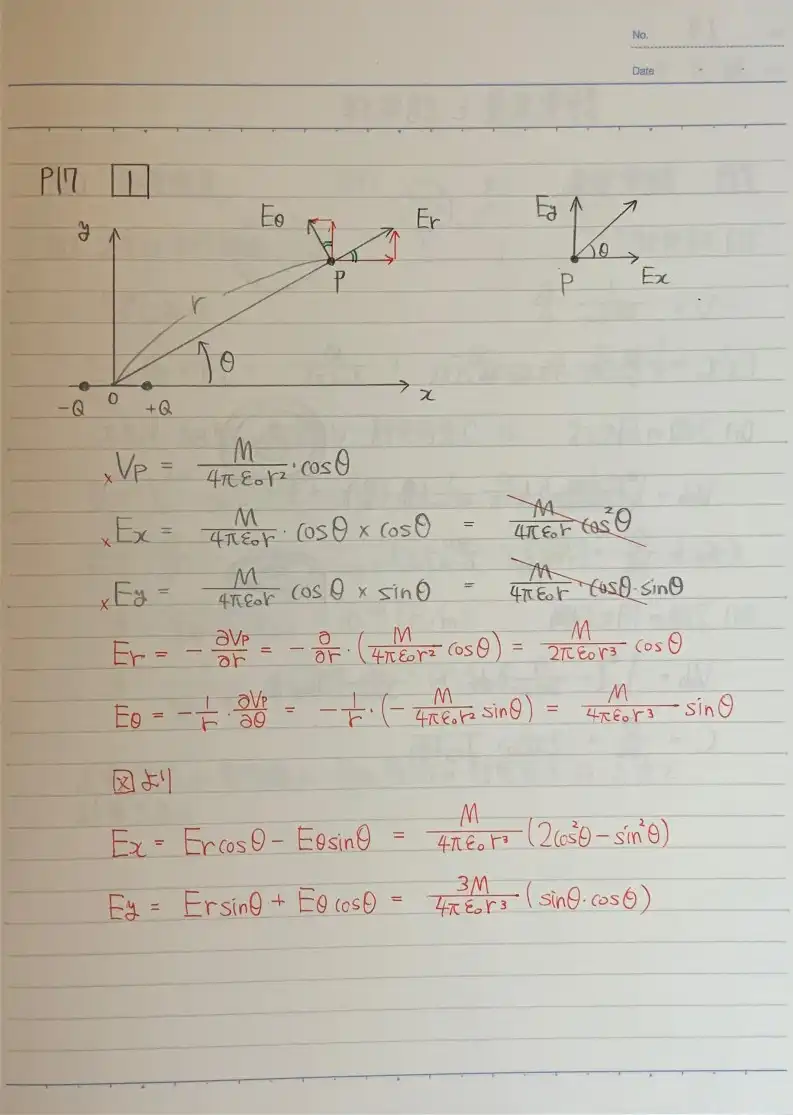 No.
Date
P17 1
y Eθ Er P r θ x -Q 0 +Q
Ey θ P Ex
×Vp = M/4πε₀r² · cosθ
×Ex = M/4πε₀r · cosθ × cosθ = M/4πε₀r cos²θ
×Ey = M/4πε₀r cosθ × sinθ = M/4πε₀r · cosθ · sinθ
Er = - ∂Vp/∂r = - ∂/∂r · (M/4πε₀r² cosθ) = M/2πε₀r³ cosθ
Eθ = - 1/r · ∂Vp/∂θ = - 1/r · (- M/4πε₀r² sinθ) = M/4πε₀r³ sinθ
図より
Ex = Er cosθ - Eθ sinθ = M/4πε₀r³ (2cos²θ - sin²θ)
Ey = Er sinθ + Eθ cosθ = 3M/4πε₀r³ (sinθ · cosθ)